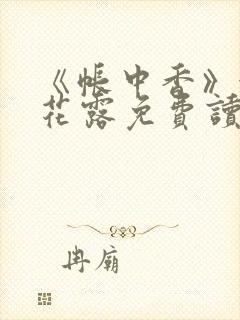 《帳中香》
花露免費讀
冉廟